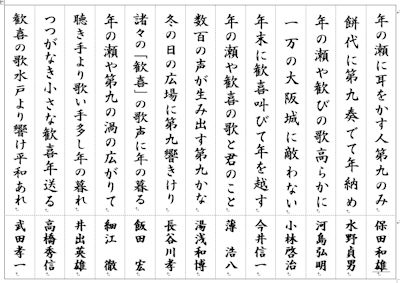 年の瀬に耳をかす人第九のみ 保田和雄
餅代に第九奏でて年納め 水野貞男
年の瀬や歓びの歌高らかに 河島弘明
一万の大阪城に敵わない 小林啓治
年末に歓喜叫びて年を越す 今井信一
年の瀬や歓喜の歌と君のこと 薄 浩八
数百の声が生み出す第九かな 湯浅和博
冬の日の広場に第九響きけり 長谷川孝
諸々の「歓喜」の歌声に年の暮る 飯田 宏
年の瀬や第九の渦の広がりて 細江 徹
聴き手より歌い手多し年の暮れ 井出英雄
つつがなき小さな歓喜年送る 高橋秀信
歓喜の歌水戸より響け平和あれ 武田孝一